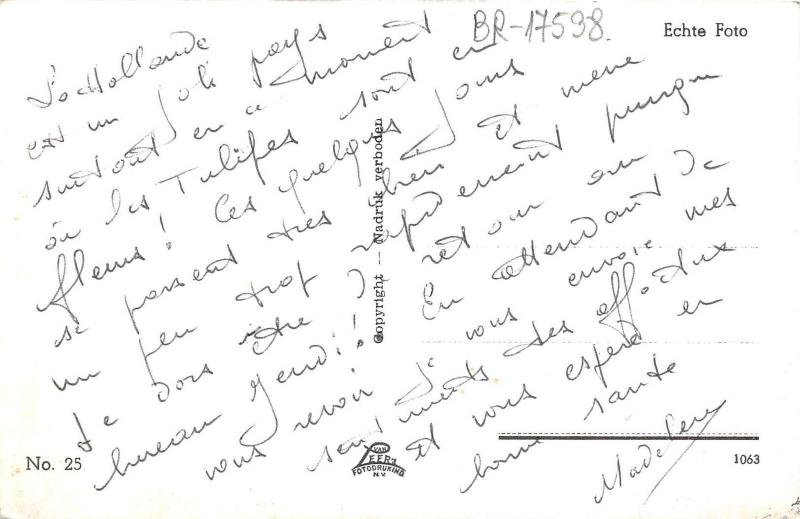 BR-17598
Echte Foto
La Hollande
est un joli pays
surtout en ce moment
où les Tulipes sont en
fleurs! Ces quelques jours
se passent très bien et même
un peu trop rapidement puisque
je dois être de retour au
bureau Jeudi! En attendant de
vous revoir je vous envoie mes
sentiments très affectueux
et vous espère en
bonne santé
Madeleine
Copyright -- Nadruk verboden
No. 25
VAN
LEER'S
FOTODRUKIND
N.V.
1063